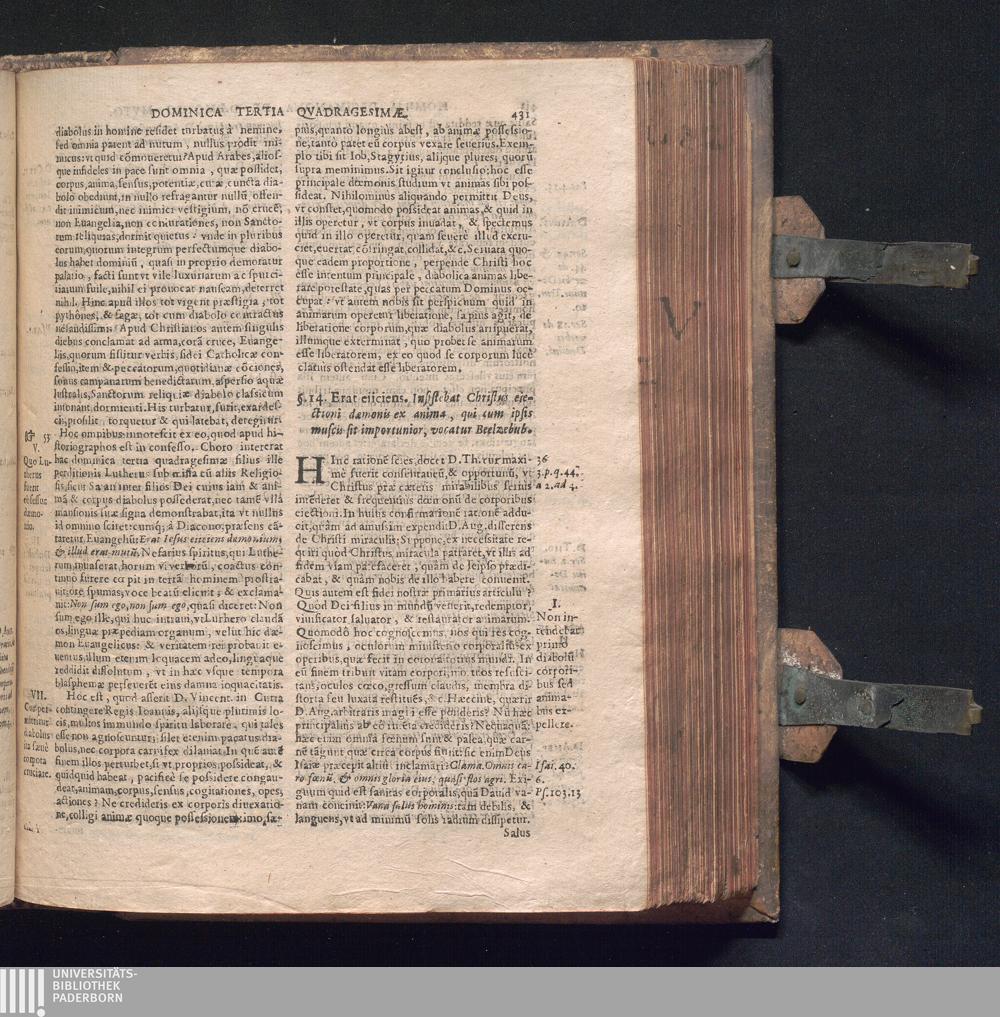 DOMINICA TERTIA QVADRAGESIMÆ. 431
diabolus in homine residet turbatus à nemine,
sed omnia parent ad nutum, nullus prodit ini-
micus: vt quid cõmoueretur? Apud Arabes, alios-
que infideles in pace sunt omnia, quæ possidet,
corpus, anima, sensus, potentiæ, curæ, cuncta dia-
bolo obediunt, in nullo refragantur nullũ, offen-
dit inimicum, nec inimici vestigium, nõ crucẽ,
non Euangelia, non coniurationes, non Sancto-
rum reliquias; dormit quietus: vnde in pluribus
eorum, quorum integrum perfectumque diabo-
lus habet dominiũ, quasi in proprio demoratur
palatio, facti sunt vt vile luxuriarum ac spurci-
tiarum suile, nihil ei prouocat nauseam, deterret
nihil. Hinc apud illos tot vigent præstigia, tot
pythones, & sagæ, tot cum diabolo contractus
nefandissimi. Apud Christianos autem singulis
diebus conclamat ad arma, corã cruce, Euange-
liis, quorum sistitur verbis, fidei Catholicæ con-
fessio, item & peccatorum, quotidianæ cõciones,
sonus campanarum benedictarum, aspersio aquæ
lustralis, Sanctorum reliquiæ diabolo classicum
insonant dormienti. His turbatur, furit, exardes-
cit, prosilit, torquetur & qui latebat, deregitur.
Hoc omnibus innotescit ex eo, quod apud hi-
storiographos est in confesso. Choro intererat
hac dominica tertia quadragesimæ filius ille
perditionis Lutherus sub missa cũ aliis Religio-
sis, sicut Satan inter filios Dei cuius iam & ani-
mã & corpus diabolus possederat, nec tamẽ vlla
mansionis suæ signa demonstrabat, ita vt nullus
id omnino sciret: cumq; à Diacono præsens cã-
taretur Euangeliũ: Erat Iesus eiiciens dæmonium,
& illud erat mutũ, Nefarius spiritus, qui Luthe-
rum inuaserat, horum vi verborũ, coactus con-
tinuò furere cœpit in terrã hominem prostra-
uit, ore spumas, voce beatũ elicuit, & exclama-
uit: Non sum ego, non sum ego, quasi diceret: Non
sum ego ille, qui huc intraui, vt Luthero claudã
os, linguæ præpediam organum, velut hic dæ-
mon Euangelicus: & veritatem rei probauit e-
uentus, illum etenim loquacem adeo, linguaque
reddidit dissolutum, vt in hæc vsque tempora
blasphemæ perseueret eius damna loquacitatis.
Hoc est, quod asserit D. Vincent. in Cintra
contingere Regis Ioannis, aliisque plurimis lo-
cis, multos immundo spiritu laborare, qui tales
esse non agnoscuntur; silet etenim pacatus dia-
bolus, nec corpora carnifex dilaniat. In quẽ autẽ
finem illos perturbet, si vt proprios possideat, &
quidquid habeat, pacificè se possidere congau-
deat, animam, corpus, sensus, cogitationes, opes,
actiones? Ne credideris ex corporis diuexatio-
ne, colligi animæ quoque possessionem, imo, sæ-
53
V.
Quo Lu-
therus
fuerit
obsessus
dæmo-
nio.
VII.
Cur per-
mittitur
diabolus
ita sæuè
corpora
cruciare.
pius, quanto longius abest, ab anima possessio-
ne, tanto patet eũ corpus vexare seuerius. Exem-
plo tibi sit Iob, Stagyrius, alijque plures, quorũ
supra meminimus. Sit igitur conclusio: hoc esse
principale dæmonis studium vt animas sibi pos-
sideat. Nihilominus aliquando permittit Deus,
vt constet, quomodo possideat animas, & quid in
illis operetur, vt corpus inuadat, & spectemus
quid in illo operetur, quam seuerè illud excru-
ciet, euertat, cõstringat, collidat, & c. Seruata quo-
que eadem proportione, perpende Christi hoc
esse intentum principale, diabolica animas libe-
rare potestate, quas per peccatum Dominus oc-
cupat: vt autem nobis sit perspicuum quid in
animarum operetur liberatione, sæpius agit, de
liberatione corporum, quæ diabolus arripuerat,
illumque exterminat, quo probet se animarum
esse liberatorem, ex eo quod se corporum luce
clarius ostendat esse liberatorem.
§. 14. Erat eiiciens. Insistebat Christus eie-
ctioni dæmonis ex anima, qui cum ipsis
muscis sit importunior, vocatur Beelzebub.
HInc rationẽ scies, docet D. Th. cur maxi-
mè fuerit consentaneũ, & opportunũ, vt
Christus præ cæteris mirabilibus seruis
intẽderet & frequentius dæmonũ de corporibus
eiectioni. In huius confirmationẽ rationẽ addu-
cit, quàm ad amussim expendit D. Aug. disserens
de Christi miraculis; Suppone, ex necessitate re-
quiri quòd Christus, miracula patraret, vt illis ad
fidem viam patefaceret, quàm de seipso prædi-
cabat, & quàm nobis de illo habere conuenit.
Quis autem est fidei nostræ primarius articulus?
Quòd Dei filius in mundũ venerit, redemptor,
viuificator saluator, & restaurator animarum.
Quomodò hoc cognoscemus, nos qui res cog-
noscimus, oculorum ministerio corporalis: ex
operibus, quæ fecit in corona totius mundi. In
eũ finem tribuit vitam corpori, mortuos resusci-
tans, oculos cœco, gressum claudis, membra di-
storta seu luxata restitués, &c. Hæccine, quærit
D. Aug. arbitraris magni esse ponderis? Nũ hæc
principalius ab eo intẽta credideris? Nequaquã:
hæc etiam omnia fœnum sunt & palea, quæ car-
nẽ tãgunt quæ circa corpus fiunt: sic enim Deus
Isaiæ præcepit altiùs inclamari: Clama. Omnis ca-
ro fœnũ, & omnis gloria eius, quasi flos agri. Exi-
guum quid est sanitas corporalis, quã Dauid va-
nam concinit: Vana salus hominis: tam debilis, &
languens, vt ad minimũ solis radium dissipetur.
Salus
36
3. p. q. 44.
a 2. ad 4.
I.
Non in-
tendebat
primò
diabolũ
corpori-
bus sed
anima-
bus ex-
pellere.
Isai. 40.
6.
Ps. 103. 13
UNIVERSITÄTS-
BIBLIOTHEK
PADERBORN